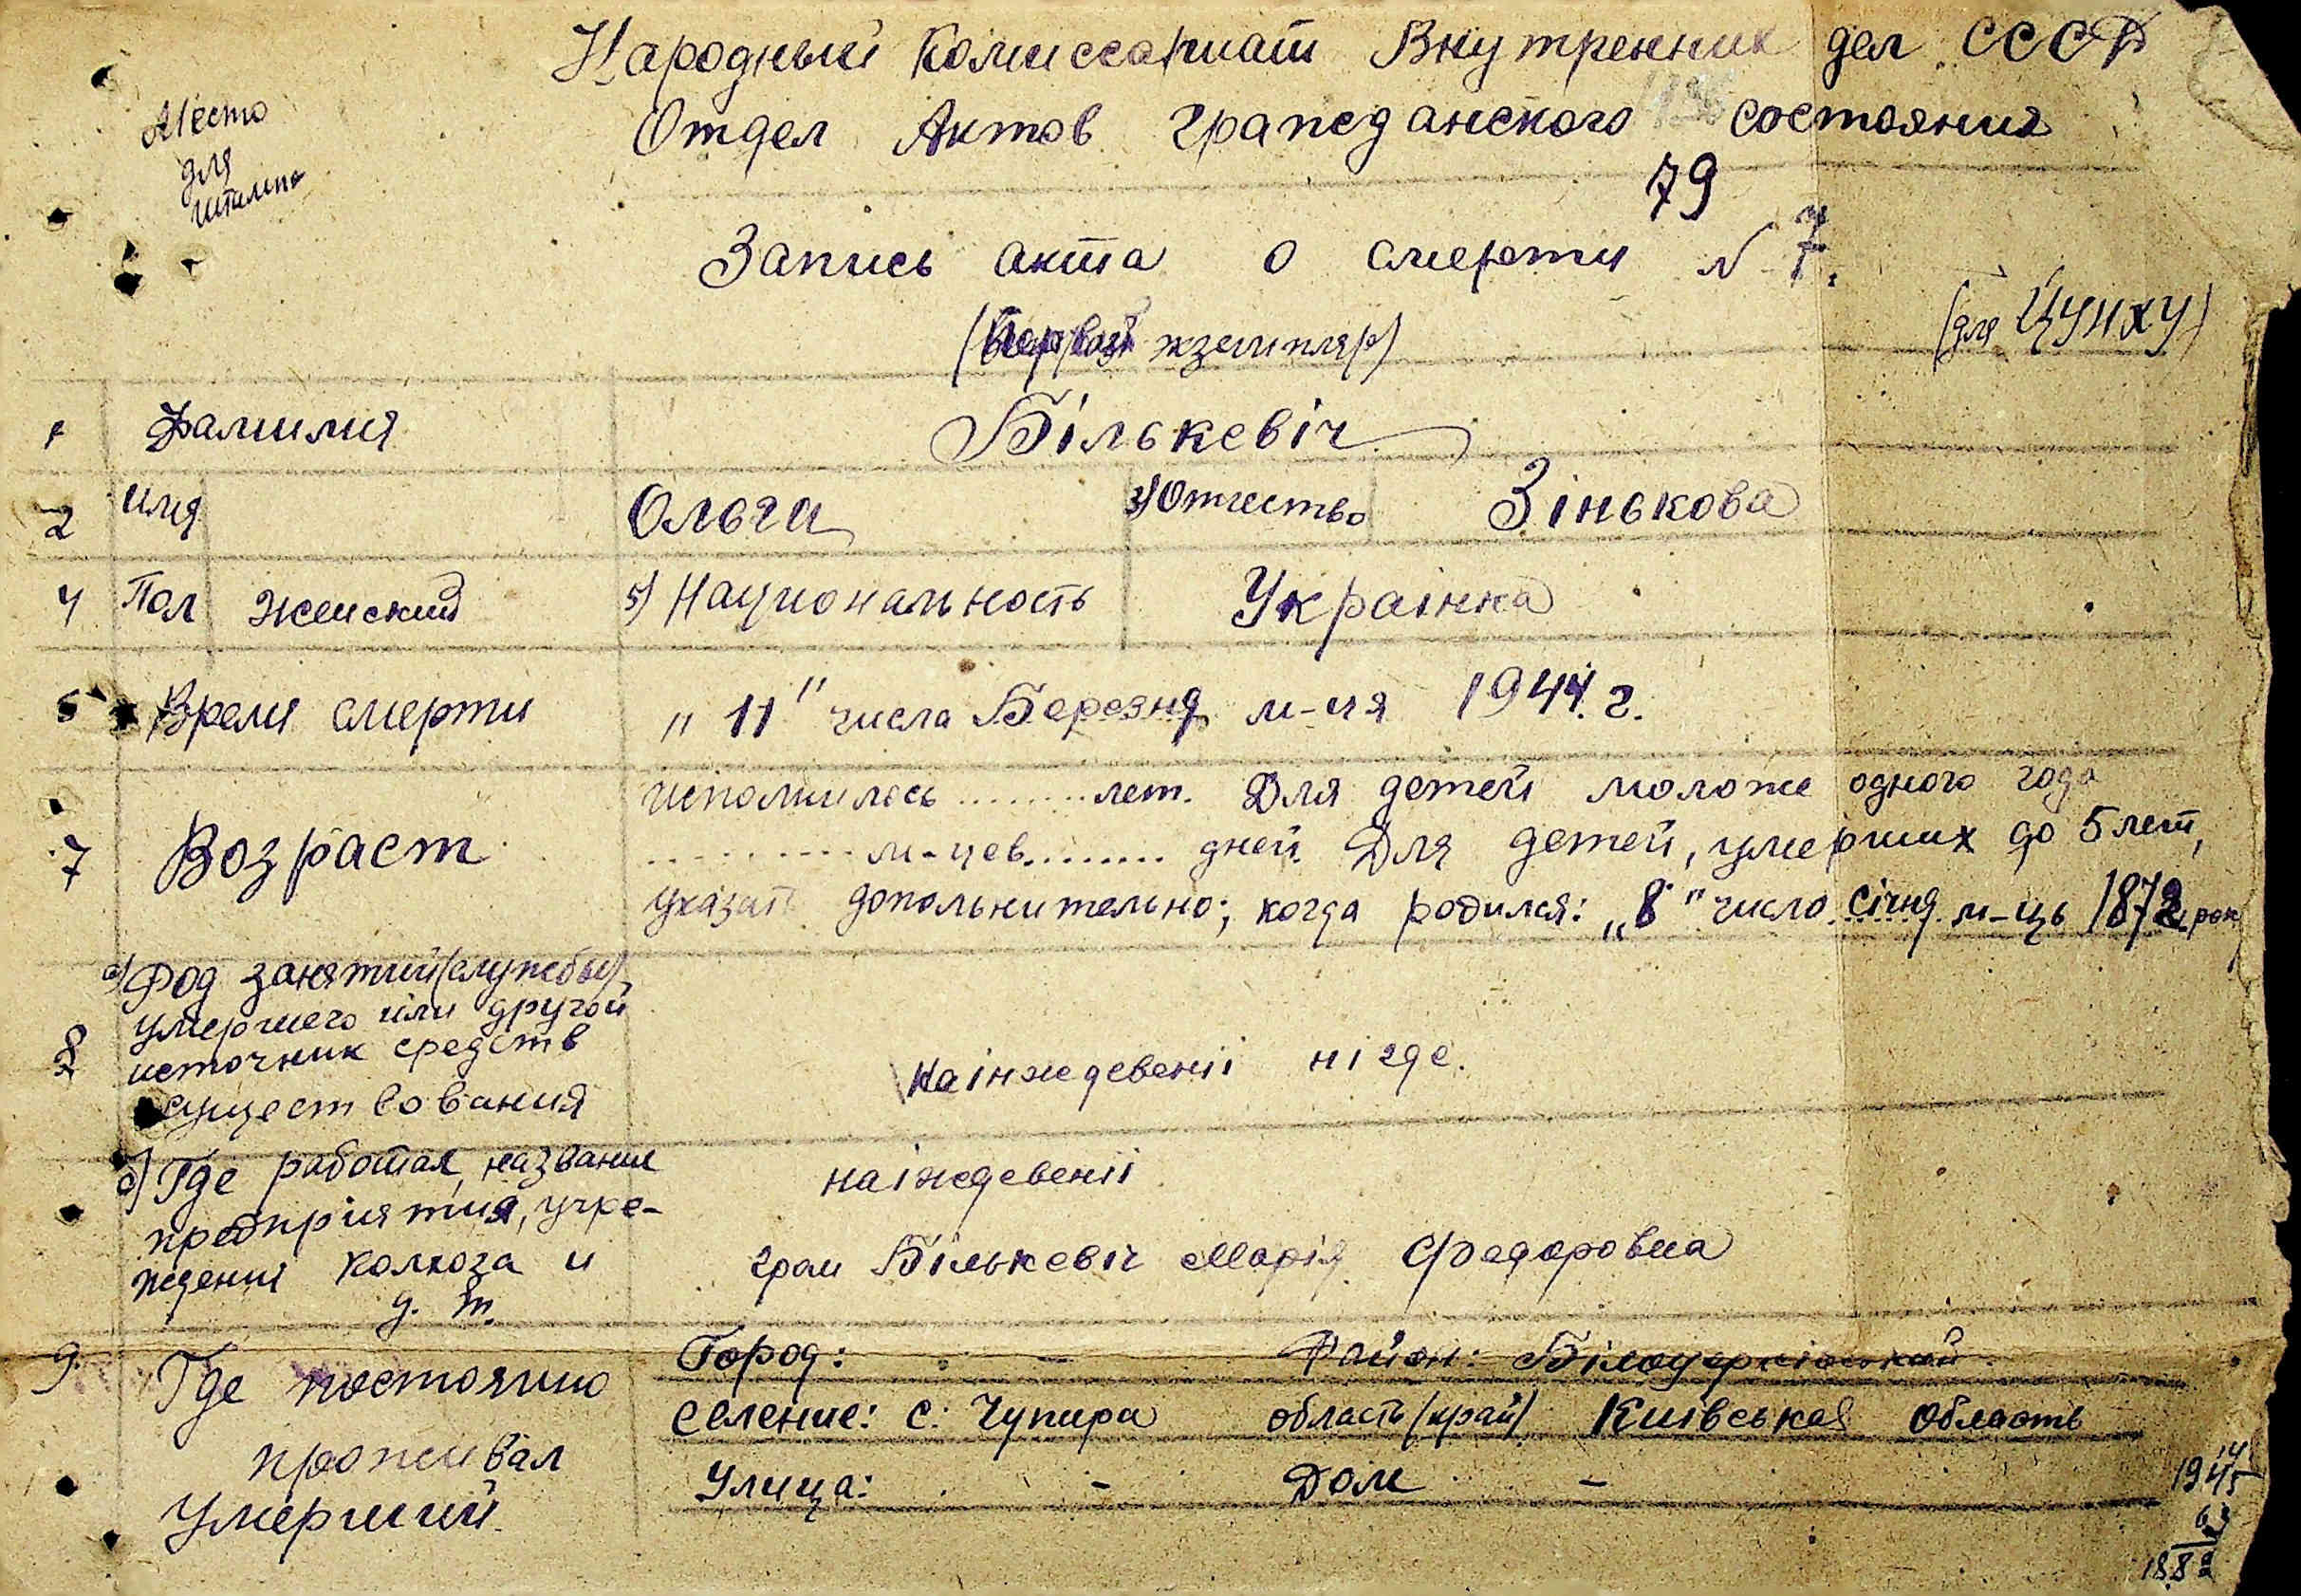 Народный Комиссариат Внутренних дел СССР
Отдел Актов гражданского состояния
Место
для
штампа
79
Запись акта о смерти № 7.
экземпляр)
(для ЦУНХУ)
1 Фамилия Бількевіч
2 имя Ольга 3) Отчество Зінькова
4 Пол Женский 5) Национальность Украінка
5 Время смерти "11" числа Березня м-ця 1944. г.
исполнилось ........ лет. Для детей моложе одного года
7 Возраст .......... м-цев ........ дней. Для детей, умерших до 5 лет,
указать допольнительно; когда родился: "8" число січня м-ць 1872 рок
а) Род занятий (службы)
умершего или другой
8 источник средств
существования
наінждевеніі нігде.
б) Где работал, название
предприятия, учре-
ждениі колхоза и
д. т.
наіждевеніі
гром Бількевіч Марія Федоровна
9. Где постоянно
проживал
Умерший.
Город: - Район: Білоцерківський
селение: с. Чупира область/край/ Киівськая область
Улица: - Дом -
1945
62
1882